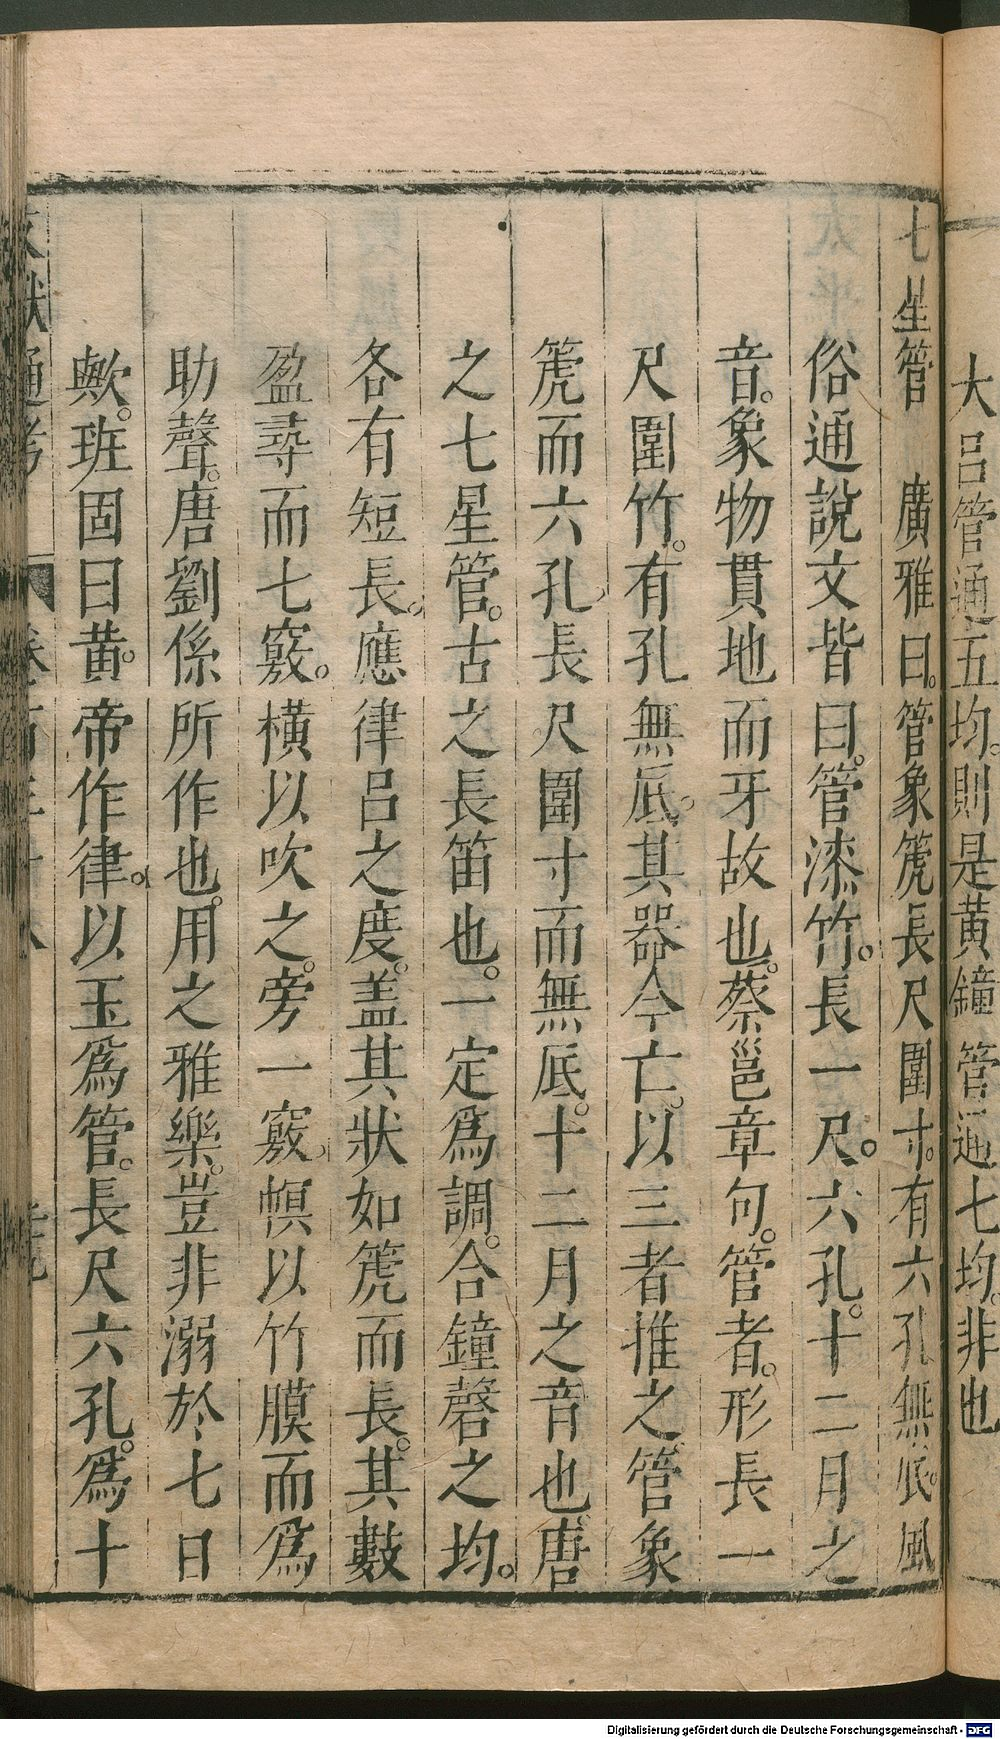 大呂管通五均。則是黃鐘管通七均。非也
七星管　廣雅曰。管象箎長尺圍寸。有六孔無底。風
俗通說文皆曰。管漆竹。長一尺。六孔。十二月之
音。象物貫地而牙故也。蔡邕章句。管者。形長一
尺圍竹。有孔無底。其器今亡。以三者推之。管象
箎而六孔。長尺圍寸而無底。十二月之音也。唐
之七星管。古之長笛也。一定為調。合鐘磬之均。
各有短長。應律呂之度。盖其狀如箎而長。其數
盈尋而七竅。橫以吹之。旁一竅。幎以竹膜而為
助聲。唐劉係所作也。用之雅樂。豈非溺於七日
歟。班固曰黃。帝作律。以玉為管。長尺六孔。為十
文獻通考　卷一百三十八
Digitalisierung gefördert durch die Deutsche Forschungsgemeinschaft - DFG